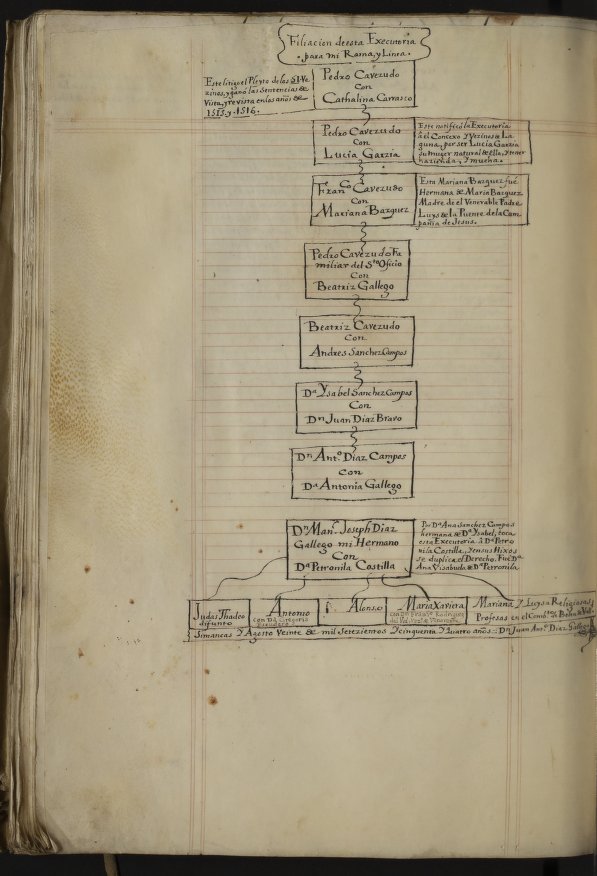 Filiacion de esta Executoria
para mi Rama, y Linea.
Este litigo el Pleyto de los 51 Ve
zinos, y ganó las Sentencias de
Vista, y revista en los años de
1515. y. 1516.
Pedro Cavezudo
Con
Cathalina Carrasco
Pedro Cavezudo
Con
Lucia Garzia
Este notificó la Executoria
à el Concexo y Vezinos de La
guna, por ser Lucia Garcia
su muger natural de ella, y tener
hazienda, y mucha.
Franco. Cavezudo
Con
Mariana Bazquez
Esta Mariana Bazquez fue
Hermana de Maria Bazquez
Madre de el Venerable Padre
Luys de la Puente de la Com
pañia de Jesus.
Pedro Cavezudo Fa
miliar del Sto. Oficio
Con
Beatriz Gallego
Beatriz Cavezudo
Con
Andres Sanchez Campos
Da. Ysabel Sanchez Campos
Con
Dn. Juan Diaz Bravo
Dn. Anto. Diaz Campos
Con
Da. Antonia Gallego
Dn. Manl. Joseph Diaz
Gallego mi Hermano
Con
Da. Petronila Costilla
Por Da. Ana Sanchez Campos
hermana de Da. Ysabel, toca
esta Executoria à Da. Petro
nila Costilla, y en sus Hixos
se duplica el Derecho. Fue Da.
Ana Visabuela de Da. Petronila.
Judas Thadeo
difunto
Antonio
con Da. Gregoria
Alonso
Maria Xaviera
con Dn. Franco. Rodriguez
Mariana Y Luysa Religiosas
Profesas en el Convto. de
Simancas Y Agosto Veinte de mil Setezientos Y cinquenta Y quatro años. Dn. Juan Anto. Diaz Gallego